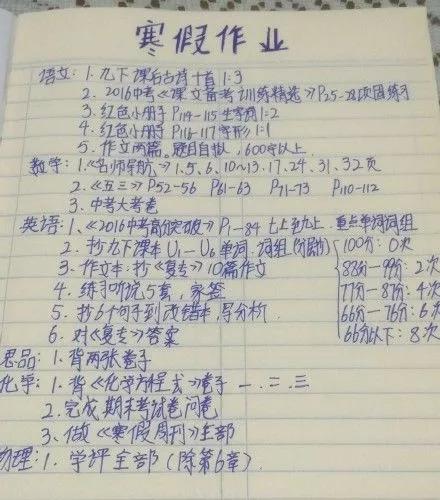 寒假作业
语文: 1. 九下课后古诗十首 1:3
2. 2016中考《课文备考训练精选》P25-28巩固练习
3. 红色小册子 P114-115 生字词 1:2
4. 红色小册子 P116-117 字形 1:1
5. 作文两篇。题目自拟, 600字以上.
数学: 1.《名师导航》1.5、6、10~13、17、24、31、32页
2.《五三》P52-56 P61-63 P71-73 P110-112
3. 中考大考卷
英语: 1.《2016中考高分突破》P1-84 七上至九上. 重点单词词组
2. 抄九下课本 U1-U6 单词. 词组 100分: 0次
3. 作文本: 抄《复专》10篇作文 88分-99分: 2次
4. 练习听说5套, 家签 77分-87分: 4次
5. 抄6个句子到改错本, 写分析. 66分-76分: 6次
6. 对《复专》答案 66分以下: 8次
思品: 1. 背两张卷子
化学: 1. 背《化学方程式》卷子 一.二.三
2. 完成期末考试卷问卷
3、做《寒假周刊》全部
物理: 1. 学评全部 (除第6章).